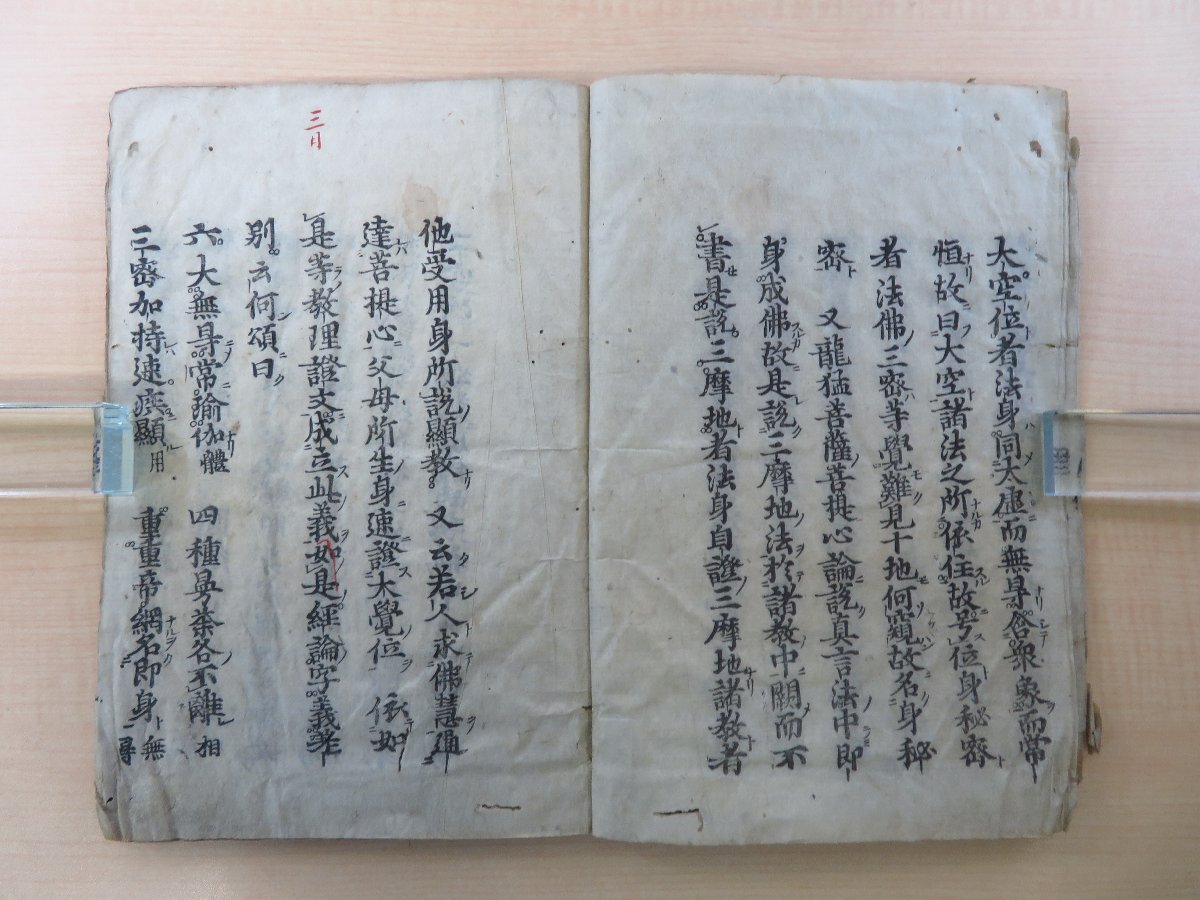 大空位者法身同大虚而無㝵含衆象而常
恒故曰大空諸法之所依住故号位身秘密
者法佛三密等覺難見十地何窺故名身秘
密 又龍猛菩薩菩提心論說真言法中即
身成佛故是說三摩地法於諸教中闕而不
書是說三摩地者法身自證三摩地諸教者
他受用身所說顯教 又云若人求佛慧通
達菩提心父母所生身速證大覺位 依如
是等教理證文成立此義如是經論字義差
別云何頌曰
六大無㝵常瑜伽體 四種曼荼各不離相
三密加持速疾顯用 重重帝網名即身無㝵
三月